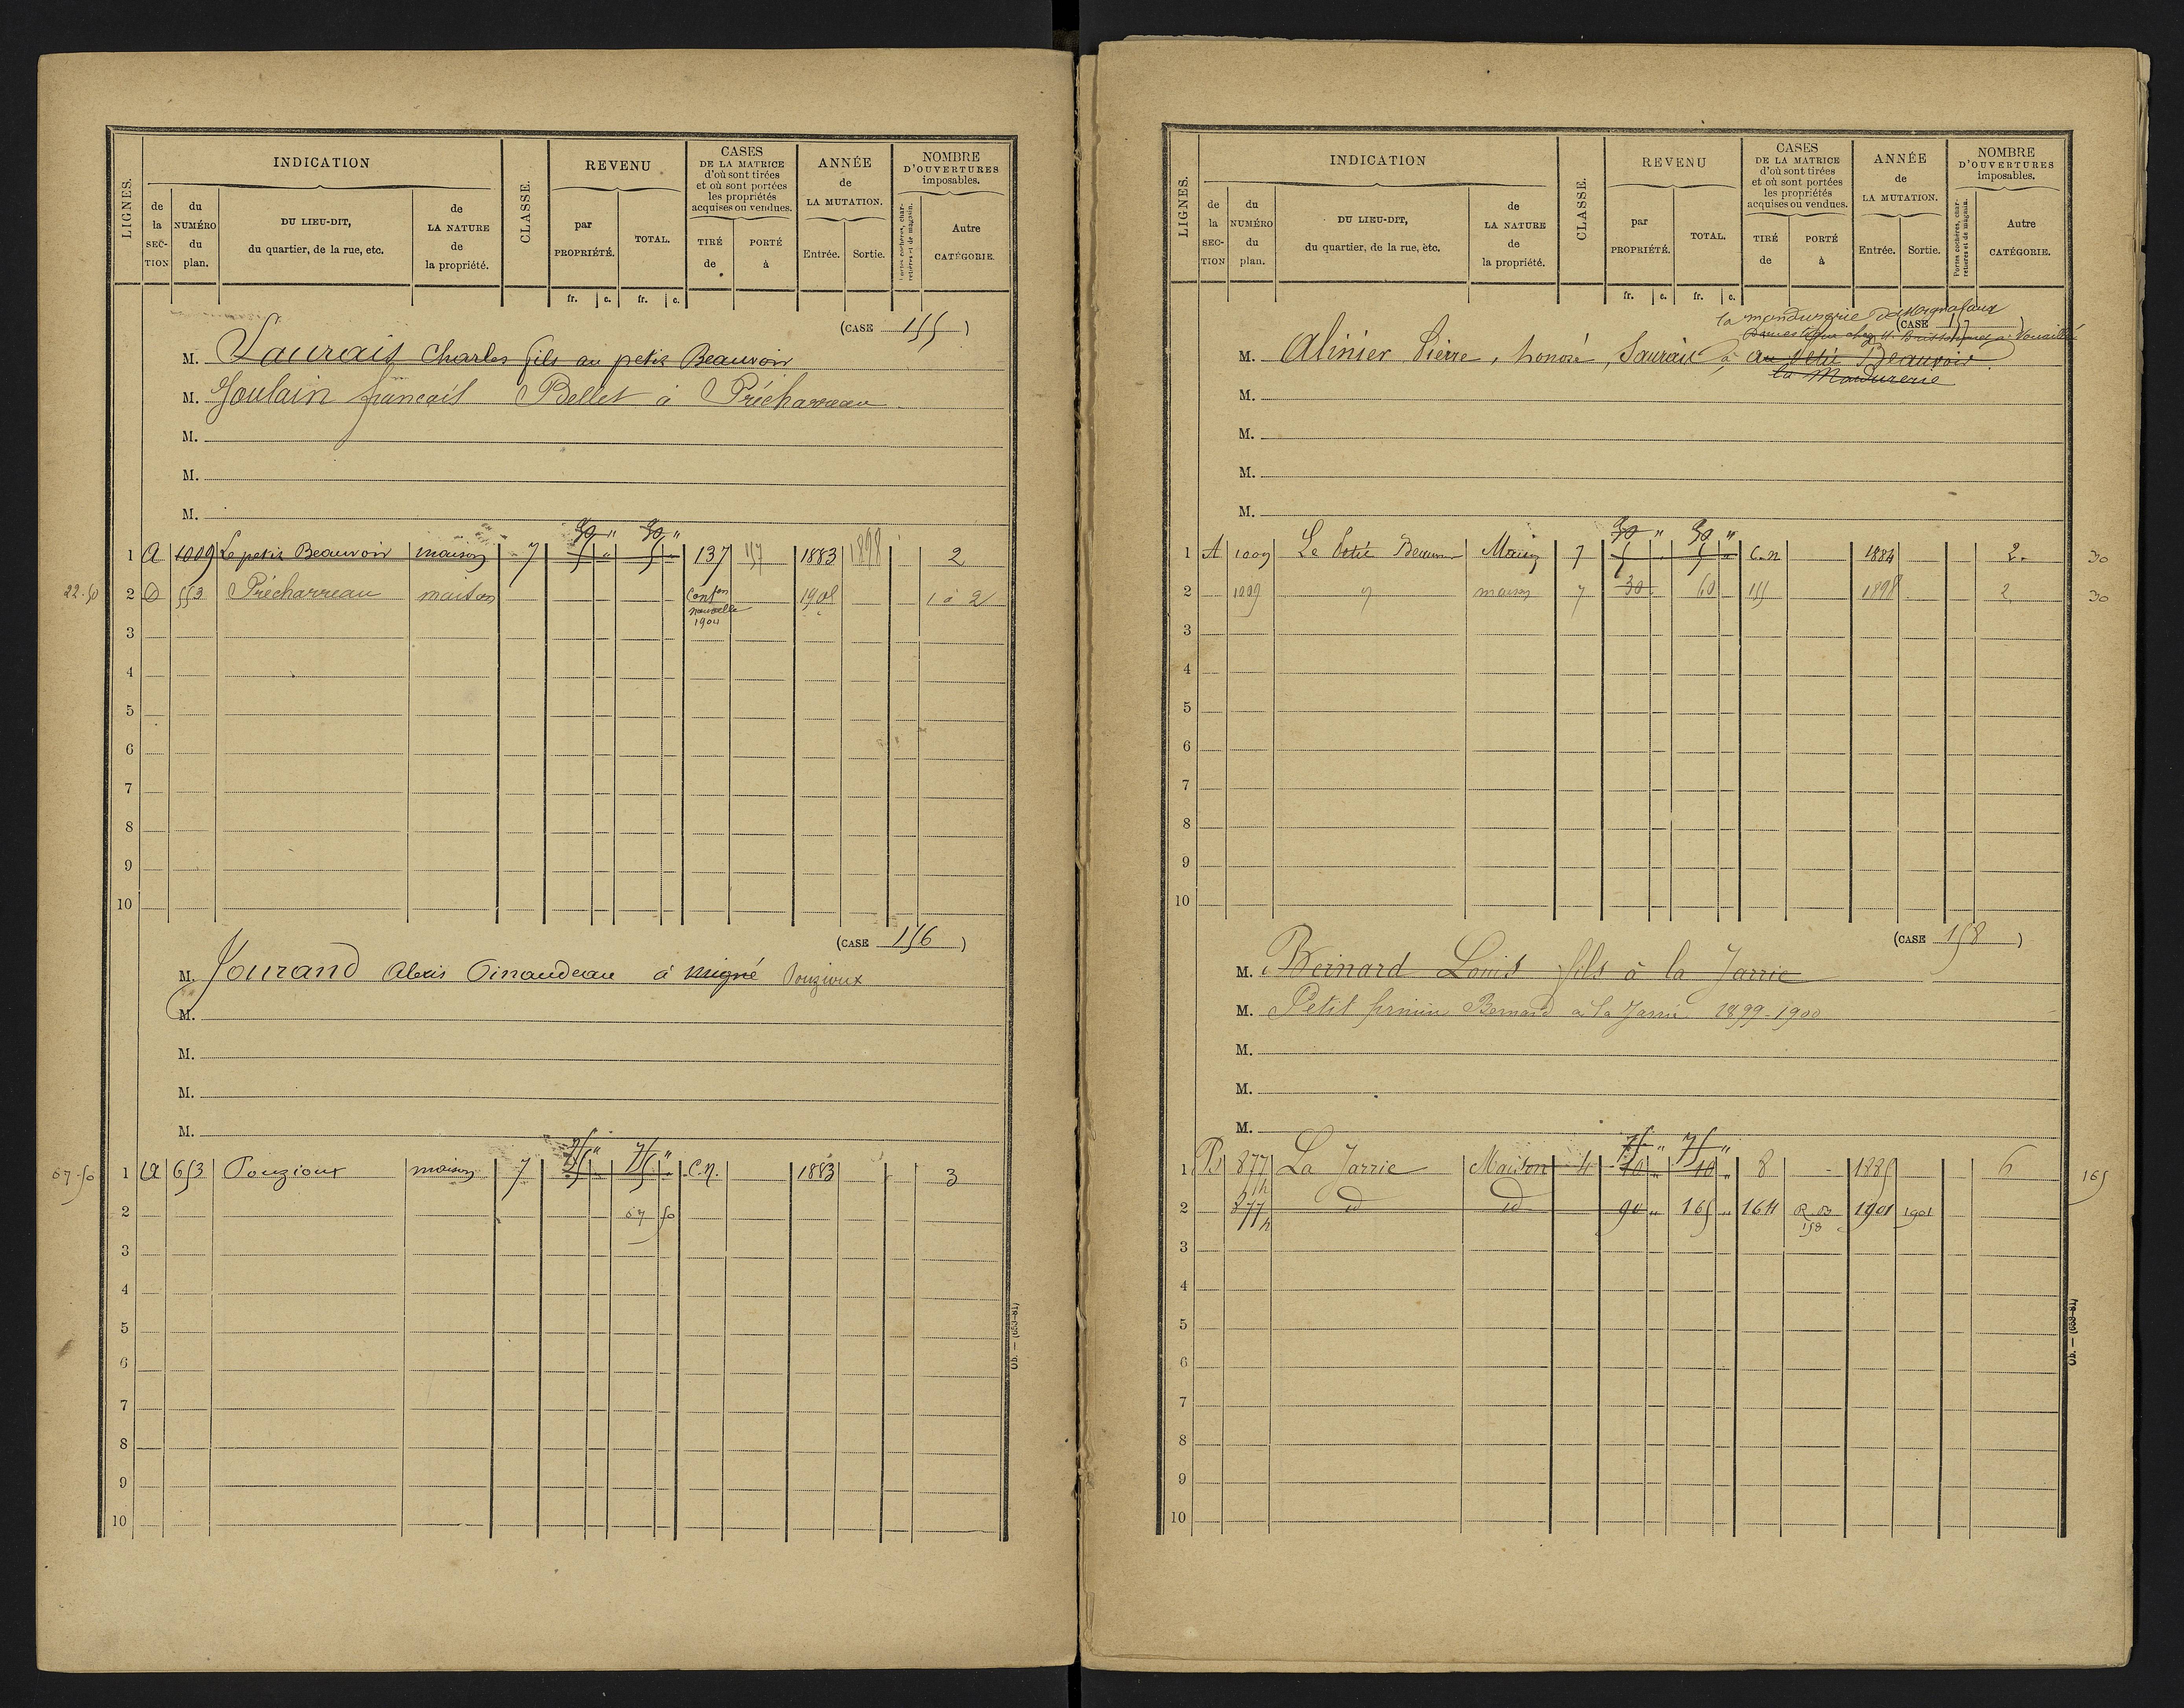 LIGNES.
INDICATION
de la SECTION
du NUMÉRO du plan.
DU LIEU-DIT, du quartier, de la rue, etc.
de LA NATURE de la propriété.
CLASSE.
REVENU
par PROPRIÉTÉ.
TOTAL.
fr. c. fr. c.
CASES DE LA MATRICE d'où sont tirées et où sont portées les propriétés acquises ou vendues.
TIRÉ de
PORTÉ à
ANNÉE de LA MUTATION.
Entrée. Sortie.
NOMBRE D'OUVERTURES imposables.
Portes cochères, charretières et de magasin.
Autre CATÉGORIE.
(CASE 155)
M. Laurais Charles fils au petit Beauvoir
M. Joulain français Bellet à Précharreau
M.
M.
M.
30 " 30 "
1 A 1009 Le petit Beauvoir maison 7 5 " 5 " 137 157 1883 1898 2
22.50 2 D 553 Précharreau maison Conson nouvelle 1904 1908 1 à 2
3
4
5
6
7
8
9
10
(CASE 156)
M. Jourand Alexis Pinaudeau à Migné Pouzioux
M.
M.
M.
M.
75 " 75 "
67.50 1 A 653 Pouzioux maison 7 C.n. 1883 3
2 67 50
3
4
5
6
7
8
9
10
Ob. — (689-81)
LIGNES.
INDICATION
de la SECTION
du NUMÉRO du plan.
DU LIEU-DIT, du quartier, de la rue, etc.
de LA NATURE de la propriété.
CLASSE.
REVENU
par PROPRIÉTÉ.
TOTAL.
fr. c. fr. c.
CASES DE LA MATRICE d'où sont tirées et où sont portées les propriétés acquises ou vendues.
TIRÉ de
PORTÉ à
ANNÉE de LA MUTATION.
Entrée. Sortie.
NOMBRE D'OUVERTURES imposables.
Portes cochères, charretières et de magasin.
Autre CATÉGORIE.
(CASE 157)
la mandurerie
M. Alinier Pierre, honoré, Laurais à au Petit Beauvoir
la Mandurerie
M.
M.
M.
M.
30 " 30 "
1 A 1009 Le Petit Beauvoir Maison 7 5 " 5 " C.n 1884 2. 30
2 1009 maison 7 30 60 155 1898 2 30
3
4
5
6
7
8
9
10
(CASE 158)
M. Bernard Louis fils à la Jarrie
M. Petit firmin Bernard à la Jarrie 1899-1900
M.
M.
M.
75 " 75 "
1 B 877 h La Jarrie Maison 4 40 " 40 " 8 1885 6 165
2 877 h d d 90 " 165 " 164 158 1901 1901
3
4
5
6
7
8
9
10
Ob. — (689-81)